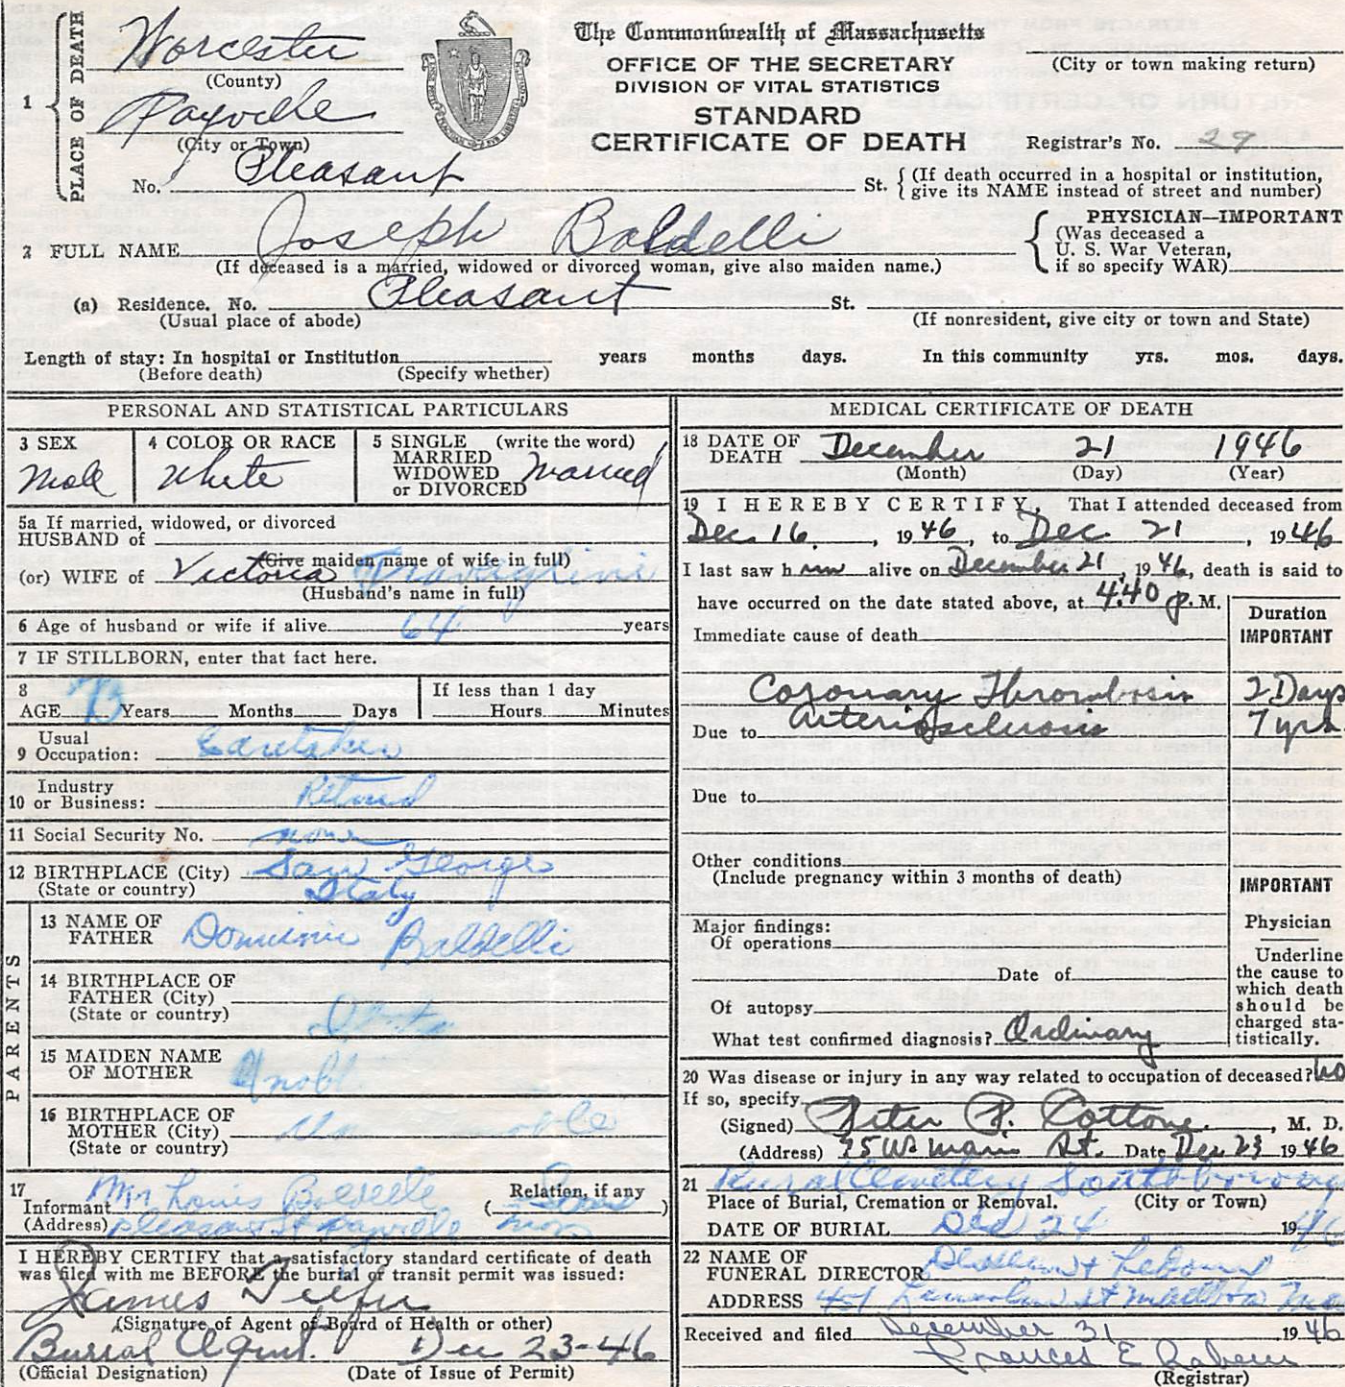 The Commonwealth of Massachusetts
OFFICE OF THE SECRETARY
DIVISION OF VITAL STATISTICS
STANDARD
CERTIFICATE OF DEATH
(City or town making return)
Registrar's No. 29
1 PLACE OF DEATH
Worcester
(County)
Fayville
(City or Town)
No. Pleasant St. (If death occurred in a hospital or institution, give its NAME instead of street and number)
2 FULL NAME Joseph Baldelli
(If deceased is a married, widowed or divorced woman, give also maiden name.)
PHYSICIAN—IMPORTANT
(Was deceased a
U. S. War Veteran,
if so specify WAR)
(a) Residence. No. Pleasant St.
(Usual place of abode)
(If nonresident, give city or town and State)
Length of stay: In hospital or Institution years months days. In this community yrs. mos. days.
(Before death) (Specify whether)
PERSONAL AND STATISTICAL PARTICULARS
3 SEX
Male
4 COLOR OR RACE
White
5 SINGLE (write the word)
MARRIED
WIDOWED
or DIVORCED
Married
5a If married, widowed, or divorced
HUSBAND of
(Give maiden name of wife in full)
(or) WIFE of Victoria Travaglini
(Husband's name in full)
6 Age of husband or wife if alive 64 years
7 IF STILLBORN, enter that fact here.
8
AGE 73 Years Months Days
If less than 1 day
Hours Minutes
Usual
9 Occupation: Caretaker
Industry
10 or Business: Retired
11 Social Security No. none
12 BIRTHPLACE (City) San George
(State or country) Italy
PARENTS
13 NAME OF
FATHER Dominic Baldelli
14 BIRTHPLACE OF
FATHER (City)
(State or country)
15 MAIDEN NAME
OF MOTHER
16 BIRTHPLACE OF
MOTHER (City)
(State or country)
17
Informant Mr Louis Baldelli (Relation, if any)
(Address) Pleasant St Fayville Mass
I HEREBY CERTIFY that a satisfactory standard certificate of death
was filed with me BEFORE the burial or transit permit was issued:
James
(Signature of Agent of Board of Health or other)
Burial Agent. Dec 23-46
(Official Designation) (Date of Issue of Permit)
MEDICAL CERTIFICATE OF DEATH
18 DATE OF
DEATH December 21 1946
(Month) (Day) (Year)
19 I HEREBY CERTIFY, That I attended deceased from
Dec. 16, 1946, to Dec. 21, 1946
I last saw him alive on December 21, 1946, death is said to
have occurred on the date stated above, at 4:40 p. M.
Duration
IMPORTANT
Immediate cause of death
Coronary Thrombosis 2 Days
Due to Arteriosclerosis 7 yrs.
Due to
Other conditions
(Include pregnancy within 3 months of death)
IMPORTANT
Major findings:
Of operations
Date of
Of autopsy
What test confirmed diagnosis? Ordinary
Physician
Underline
the cause to
which death
should be
charged sta-
tistically.
20 Was disease or injury in any way related to occupation of deceased? no
If so, specify
(Signed) Peter P. Cottone, M. D.
(Address) 75 W. Main St. Date Dec 23 1946
21 Rural Cemetery Southborough
Place of Burial, Cremation or Removal. (City or Town)
DATE OF BURIAL Dec 24 1946
22 NAME OF
FUNERAL DIRECTOR
ADDRESS St
Received and filed December 31 1946
Frances E
(Registrar)